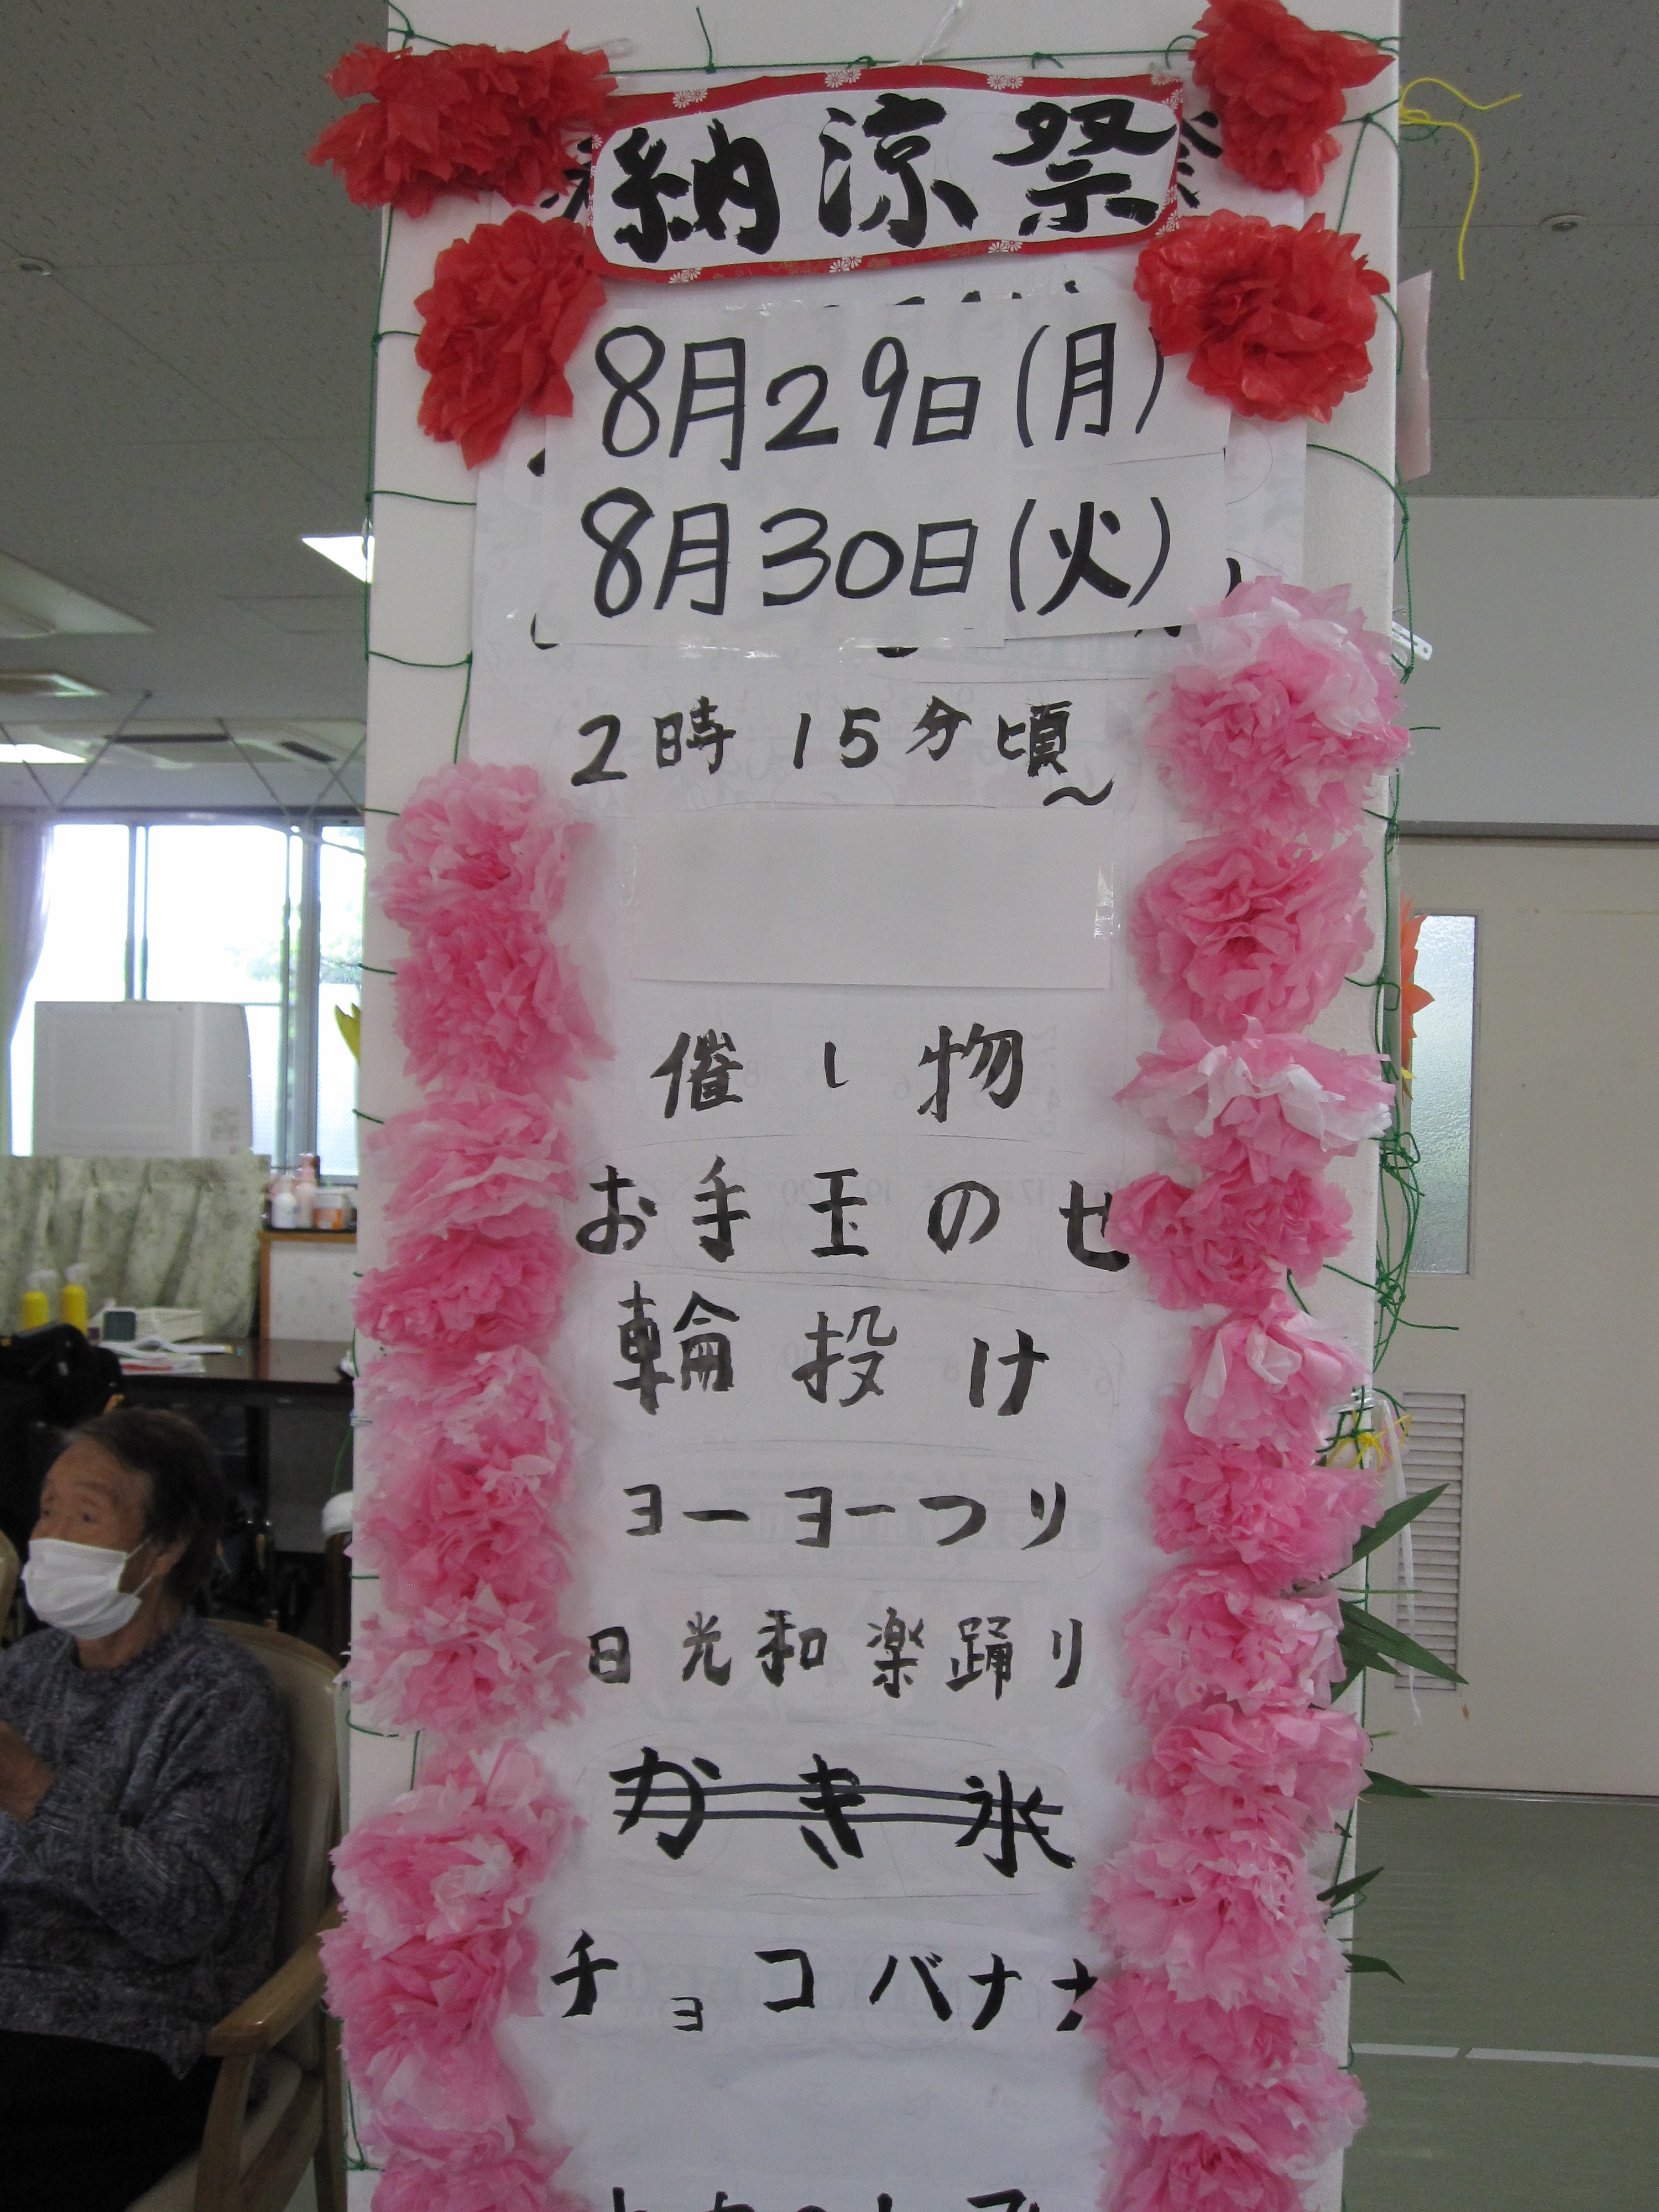 納涼祭
8月29日(月)
8月30日(火)
2時15分頃~
催し物
お手玉のせ
輪投け
ヨーヨーつり
日光和楽踊り
かき氷
チョコバナナ